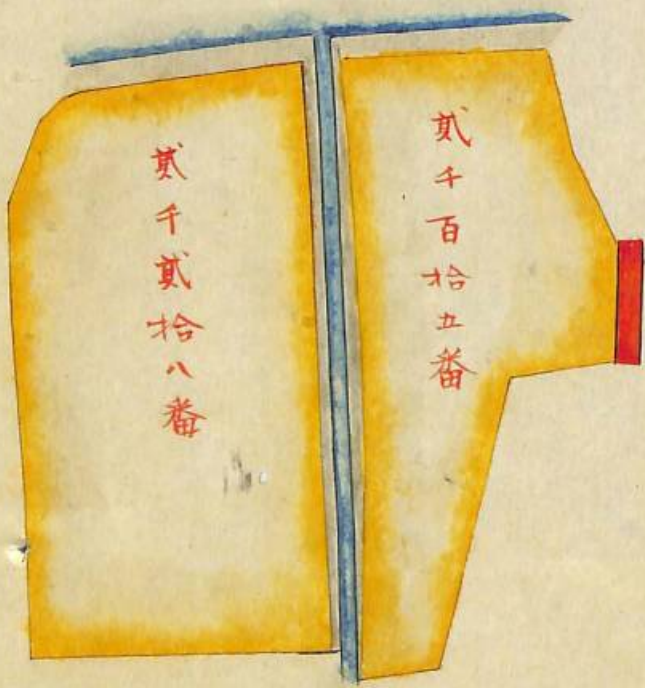 貮千百拾五番
貮千貮拾八番